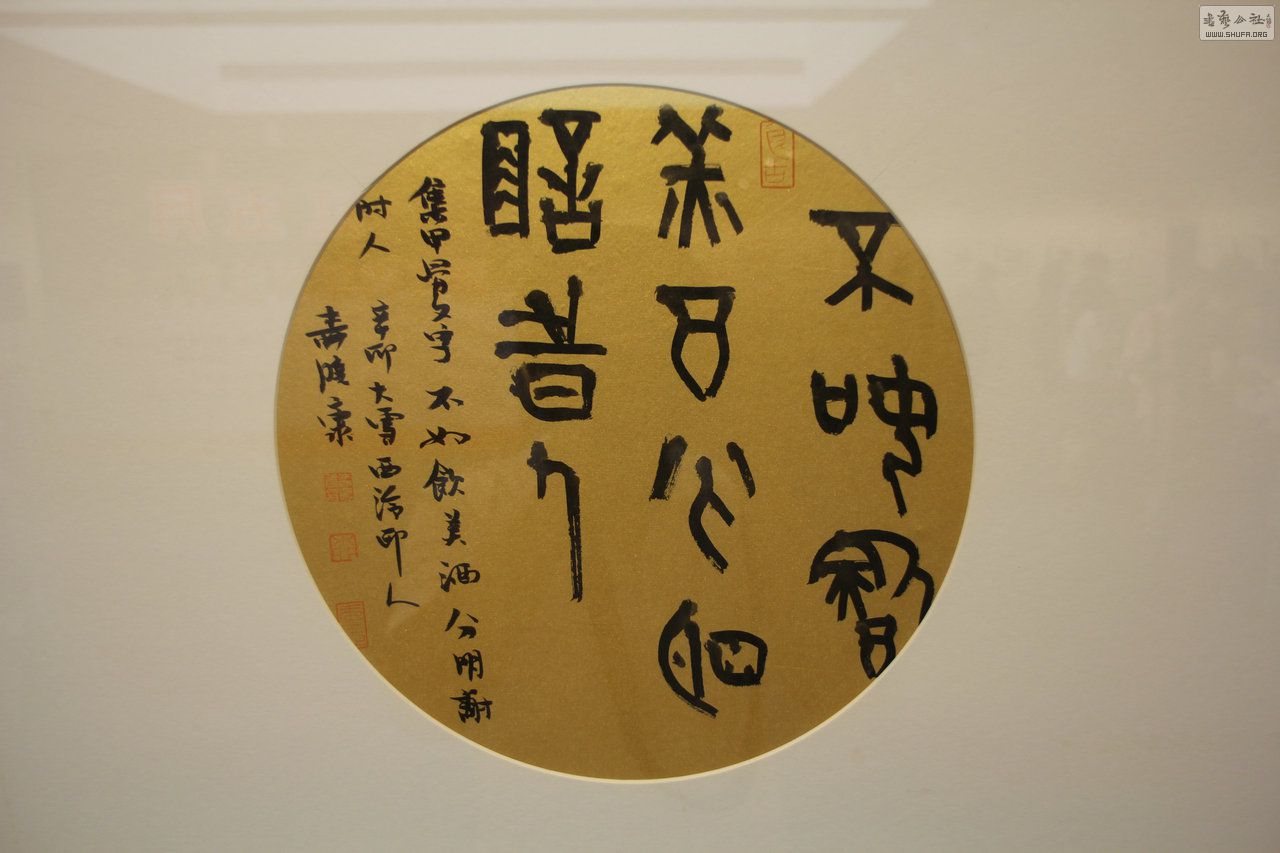 不如飲
美酒分明
謝時人
集甲骨文字 不如飲美酒分明謝
时人 辛卯大雪西泠印人
书艺公社
WWW.SHUFA.ORG